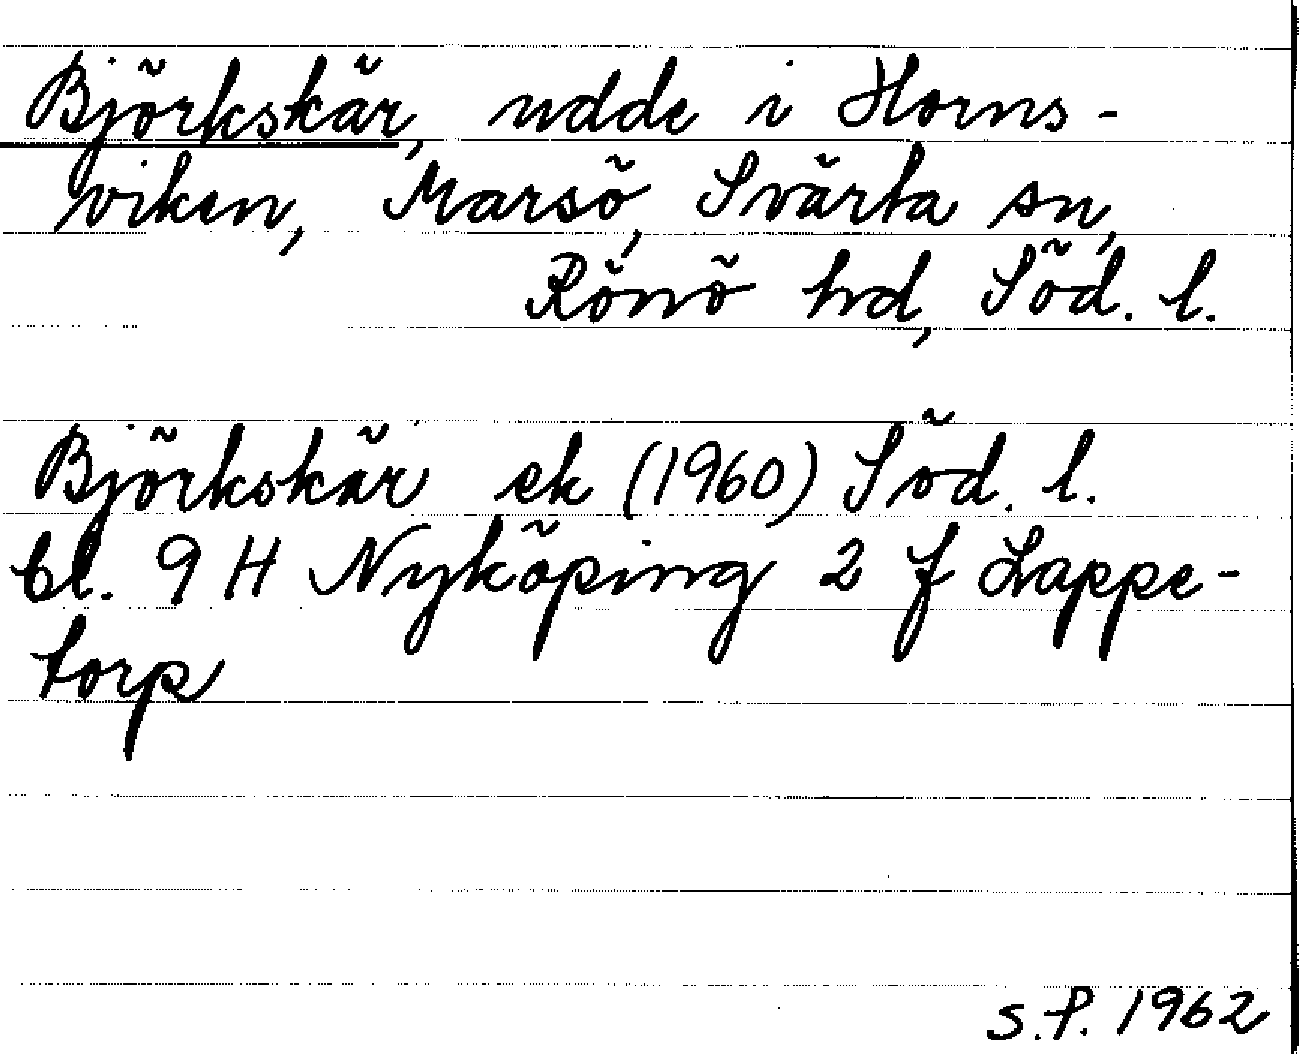 Björkskär, udde i Horns-
viken, Marsö, Svärta sn,
Rönö hd, Söd. l.
Björkskär ek (1960) Söd. l.
bl. 9 H Nyköping 2 f Lappe-
torp
S.P. 1962